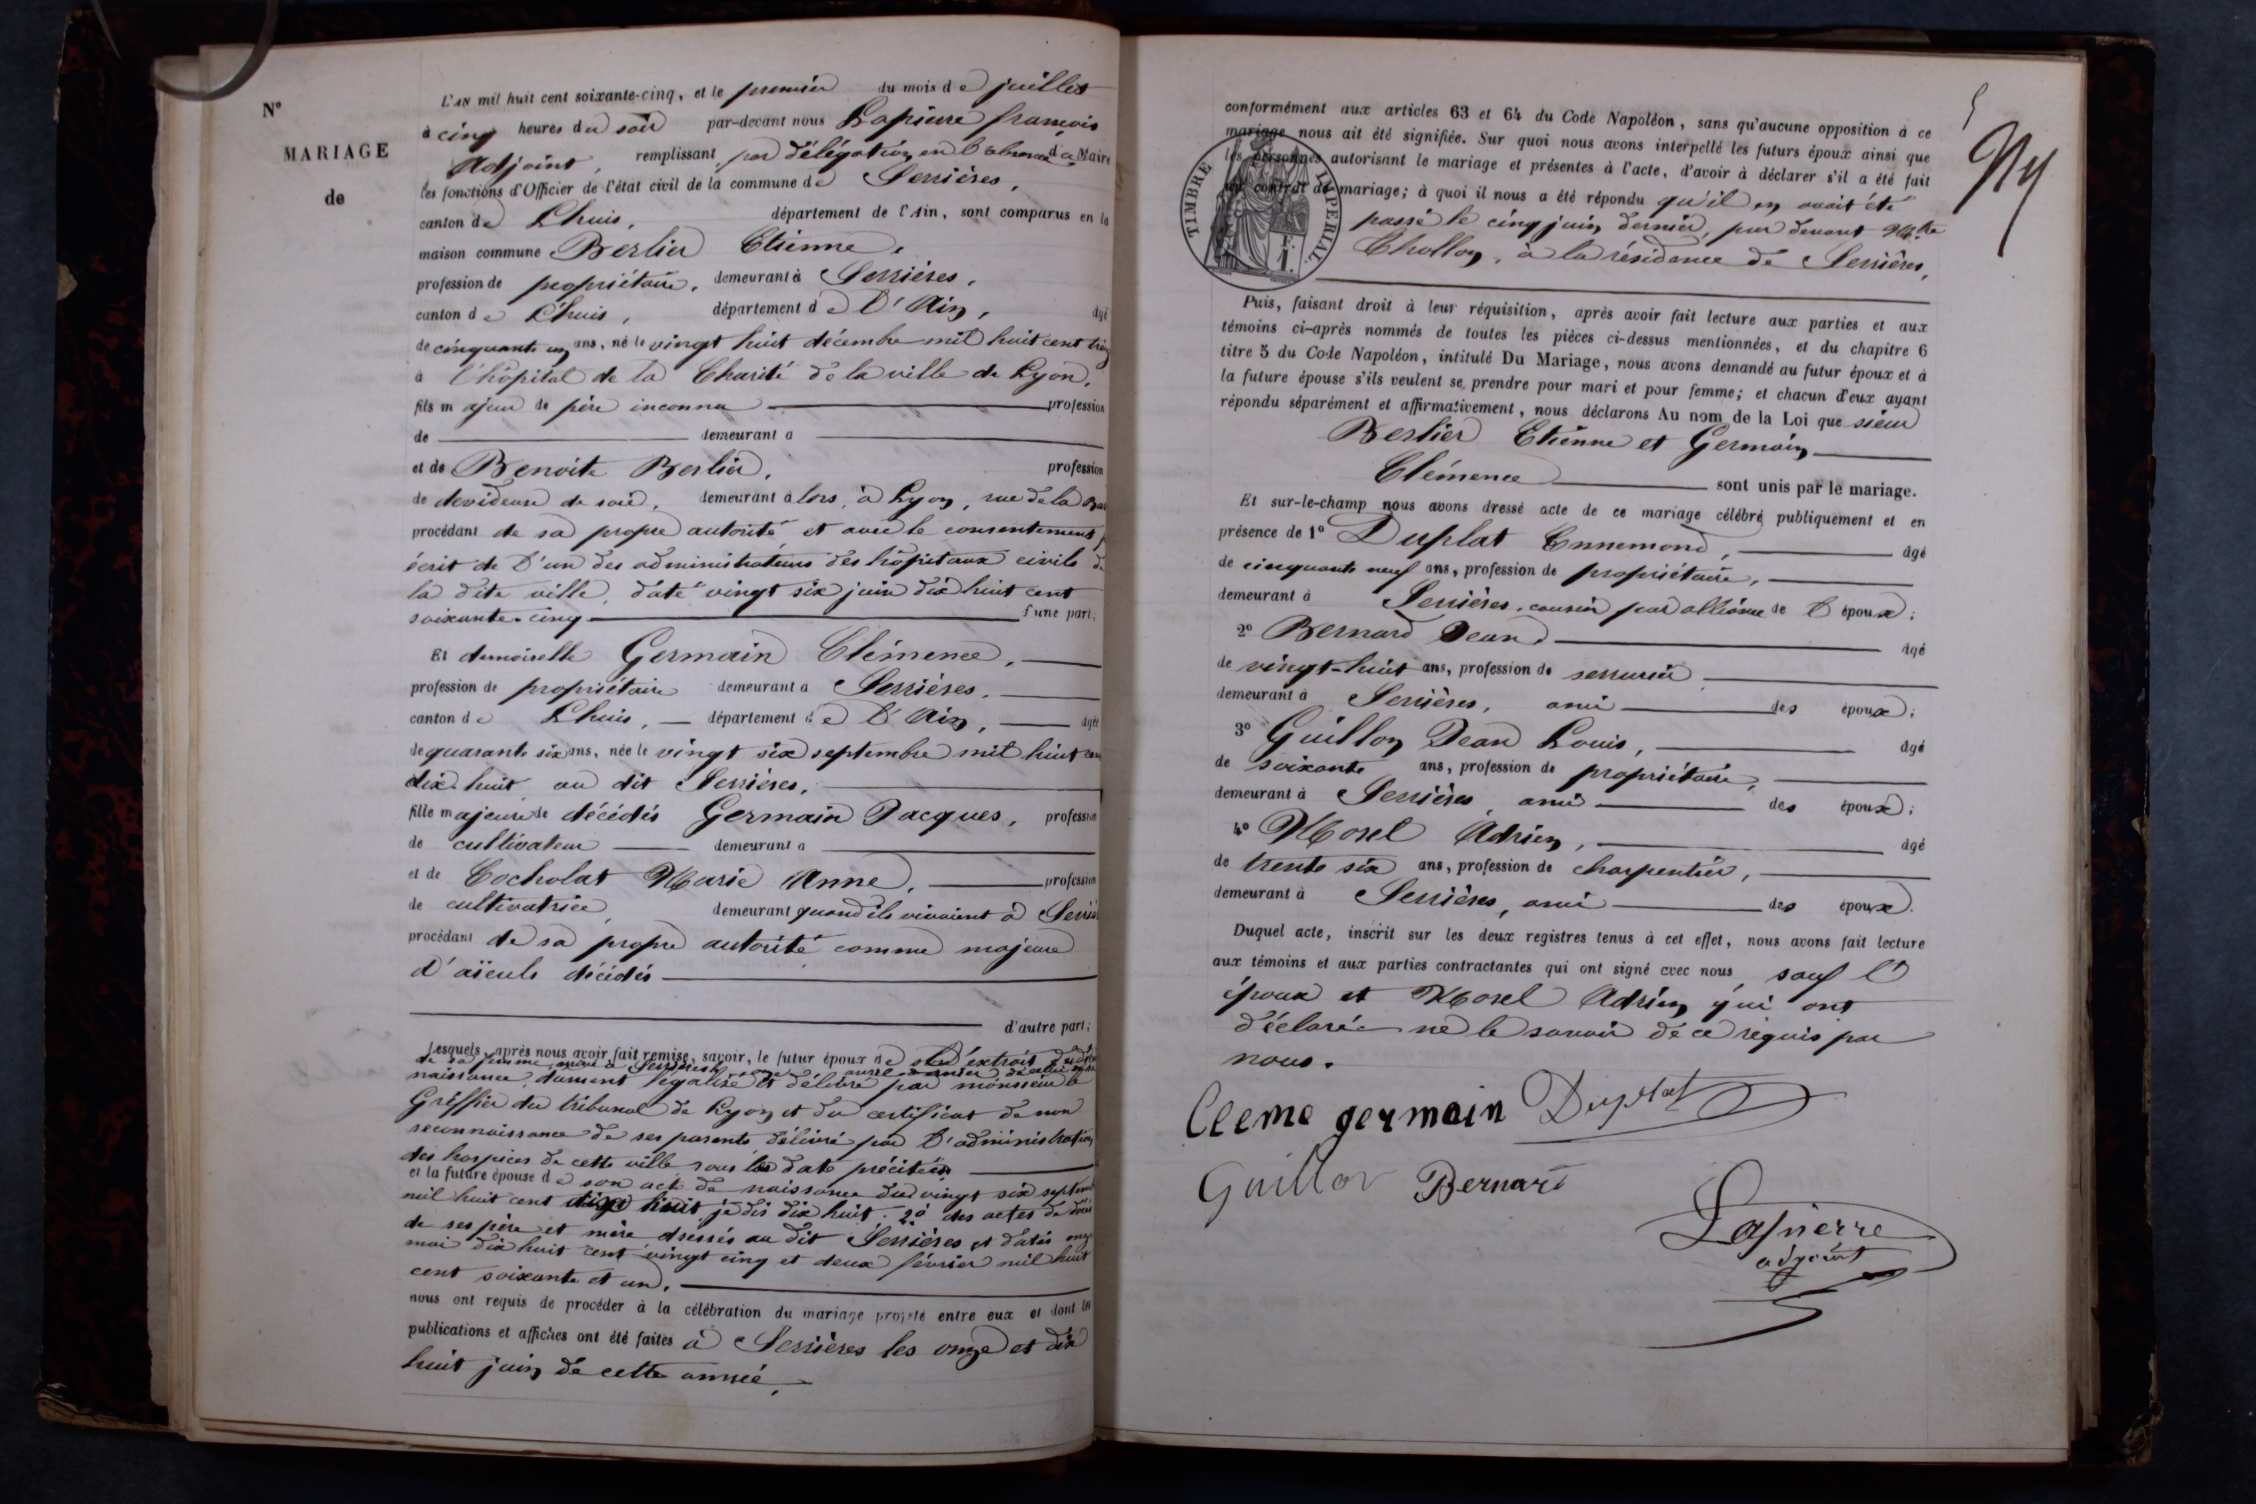 N°
MARIAGE
de
L'AN mil huit cent soixante-cinq, et le premier du mois de juillet
à cinq heures du soir par-devant nous Lapierre françois
Adjoint, remplissant par délégation en l'absence du Maire
les fonctions d'Officier de l'état civil de la commune de Serrières,
canton de Lhuis, département de l'Ain, sont comparus en la
maison commune Berlier Etienne,
profession de propriétaire, demeurant à Serrières,
canton de Lhuis, département de L'Ain, âgé
de cinquante un ans, né le vingt huit décembre mil huit cent
à l'hôpital de la Charité de la ville de Lyon,
fils majeur de père inconnu profession
de demeurant à
et de Benoite Berlier, profession
de devideuse de soie, demeurant à lors, à Lyon, rue de la
procédant de sa propre autorité et avec le consentement
écrit de L'un des administrateurs des hôpitaux civils de
la dite ville, daté vingt six juin dix huit cent
soixante-cinq d'une part;
Et demoiselle Germain Clémence,
profession de propriétaire demeurant à Serrières,
canton de Lhuis, département de L'Ain, âgée
de quarante six ans, née le vingt six septembre mil huit cent
dix-huit au dit Serrières,
fille majeure de décédés Germain Jacques, profession
de cultivateur demeurant à
et de Cocholat Marie Anne, profession
de cultivatrice, demeurant quand ils vivaient à
procédant de sa propre autorité comme majeure
d'aïeuls décédés
d'autre part;
Lesquels, après nous avoir fait remise, savoir, le futur époux de extrait de
naissance, dument légalisé et délivré par monsieur le
Greffier du tribunal de Lyon et du certificat de non
reconnaissance de ses parents délivré par L'administration
des hospices de cette ville sous la date précitée
et la future épouse de son acte de naissance du vingt six
mil huit cent dix huit je dis dix huit. 2° des actes de décès
de ses père et mère dressés au dit Serrières et datés onze
mai dix huit cent vingt cinq et deux février mil huit
cent soixante et un,
nous ont requis de procéder à la célébration du mariage projeté entre eux et dont les
publications et affiches ont été faites à Serrières les onze et dix
huit juin de cette année,
5
conformément aux articles 63 et 64 du Code Napoléon, sans qu'aucune opposition à ce
mariage nous ait été signifiée. Sur quoi nous avons interpellé les futurs époux ainsi que
les personnes autorisant le mariage et présentes à l'acte, d'avoir à déclarer s'il a été fait
un contrat de mariage; à quoi il nous a été répondu qu'il en avait été
passé le cinq juin dernier, par devant Me
Chollon, à la résidence de Serrières,
TIMBRE IMPERIAL
Puis, faisant droit à leur réquisition, après avoir fait lecture aux parties et aux
témoins ci-après nommés de toutes les pièces ci-dessus mentionnées, et du chapitre 6
titre 5 du Code Napoléon, intitulé Du Mariage, nous avons demandé au futur époux et à
la future épouse s'ils veulent se prendre pour mari et pour femme; et chacun d'eux ayant
répondu séparément et affirmativement, nous déclarons Au nom de la Loi que sieur
Berlier Etienne et Germain
Clémence sont unis par le mariage.
Et sur-le-champ nous avons dressé acte de ce mariage célébré publiquement et en
présence de 1° Duplat Ennemond, âgé
de cinquante neuf ans, profession de propriétaire,
demeurant à Serrières, cousin par alliance de L'époux;
2° Bernard Jean, âgé
de vingt-huit ans, profession de serrurier
demeurant à Serrières, ami des époux;
3° Guillon Jean Louis, âgé
de soixante ans, profession de propriétaire,
demeurant à Serrières, ami des époux;
4° Morel Adrien, âgé
de trente six ans, profession de charpentier,
demeurant à Serrières, ami des époux.
Duquel acte, inscrit sur les deux registres tenus à cet effet, nous avons fait lecture
aux témoins et aux parties contractantes qui ont signé avec nous, sauf L'
époux et Morel Adrien qui ont
déclaré ne le savoir de ce requis par
nous.
Cleme germain Duplat
Guillon Bernard
Lapierre
adjoint